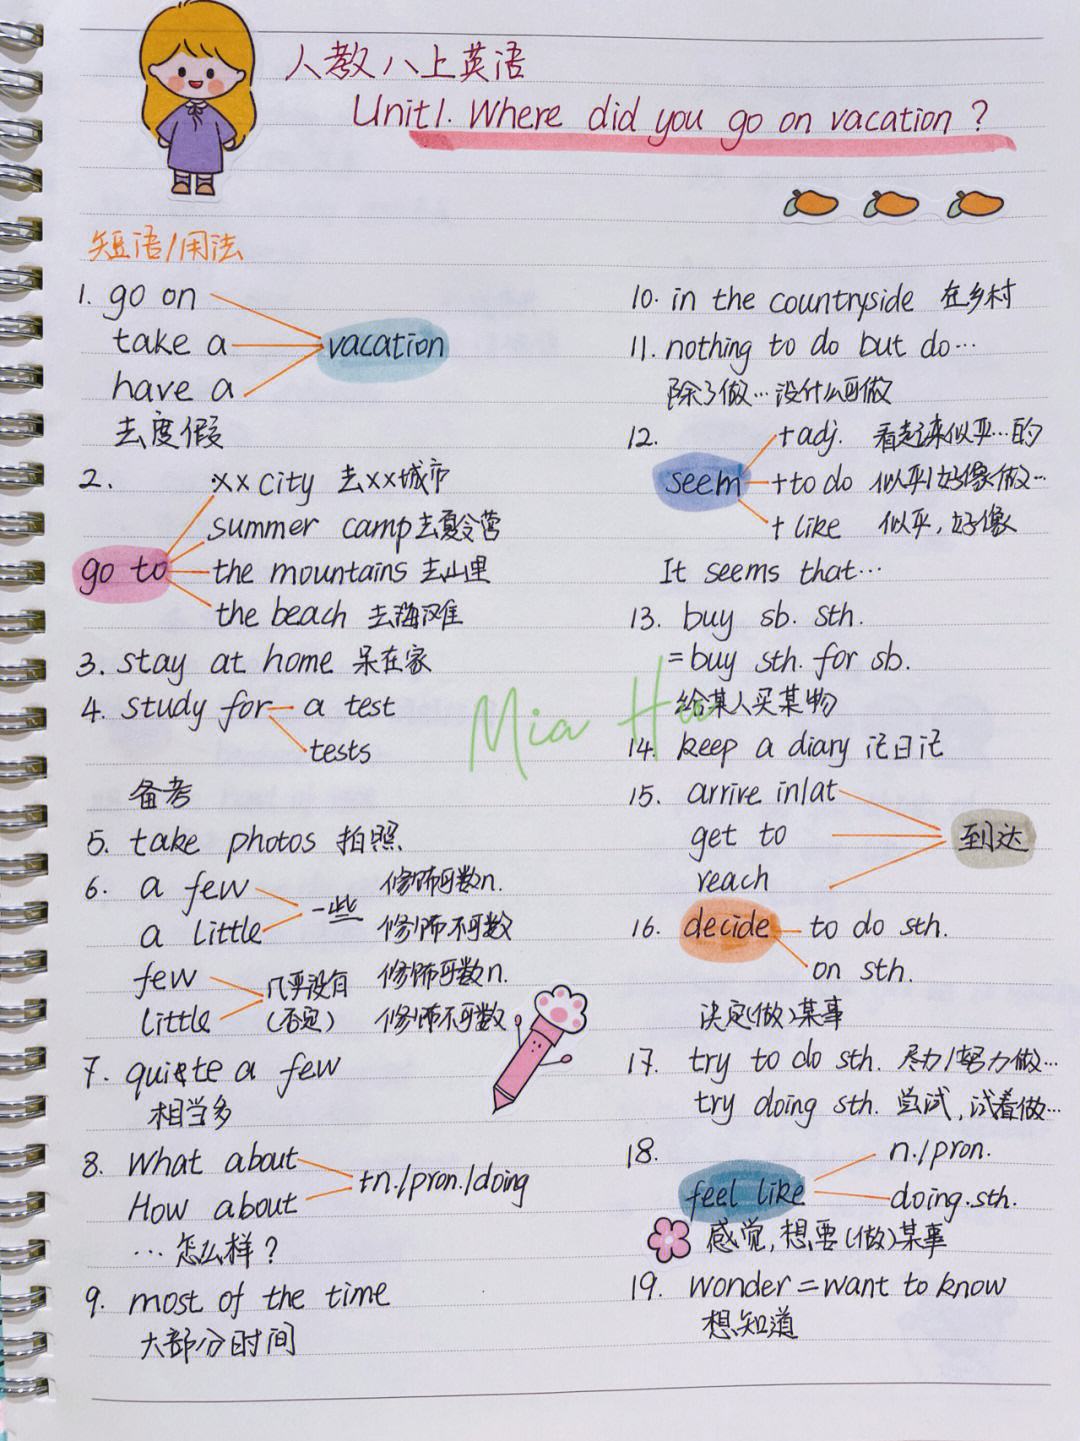 人教八上英语
Unit1. Where did you go on vacation?
短语/用法
1. go on
take a
have a
vacation
去度假
2. xx city 去xx城市
summer camp去夏令营
go to
the mountains 去山里
the beach 去海滩
3. stay at home 呆在家
4. study for a test
tests
备考
5. take photos 拍照
6. a few 修饰可数n.
一些
a little 修饰不可数
few 修饰可数n.
几乎没有
little (否定) 修饰不可数
7. quiete a few
相当多
8. What about
+n./pron./doing
How about
...怎么样?
9. most of the time
大部分时间
10. in the countryside 在乡村
11. nothing to do but do...
除了做...没什么可做
12. +adj. 看起来似乎...的
seem +to do 似乎/好像做...
+ like 似乎,好像
It seems that...
13. buy sb. sth.
=buy sth. for sb.
给某人买某物
Mia Hu
14. keep a diary 记日记
15. arrive in/at
get to
到达
reach
16. decide to do sth.
on sth.
决定(做)某事
17. try to do sth. 尽力/努力做...
try doing sth. 尝试,试着做...
18. n./pron.
feel like doing.sth.
感觉,想要(做)某事
19. wonder=want to know
想知道